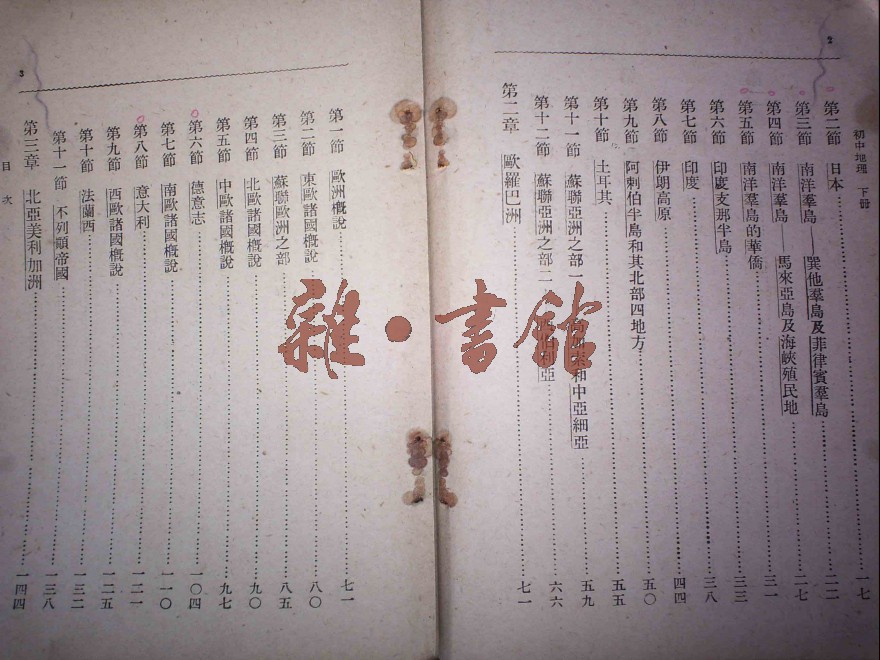 2
初中地理 下册
第二節 日本……一七
第三節 南洋羣島——巽他羣島及菲律賓羣島……二二
第四節 南洋羣島——馬來亞島及海峽殖民地……二七
第五節 南洋羣島的華僑……三一
第六節 印度支那半島……三三
第七節 印度……三八
第八節 伊朗高原……四四
第九節 阿剌伯半島和其北部四地方……五〇
第十節 土耳其……五五
第十一節 蘇聯亞洲之部一 加索和中亞細亞……五九
第十二節 蘇聯亞洲之部二 伯利亞……六六
第二章 歐羅巴洲……七一
第一節 歐洲概說……七一
第二節 東歐諸國概說……八〇
第三節 蘇聯歐洲之部……八五
第四節 北歐諸國概說……九〇
第五節 中歐諸國概說……九七
第六節 德意志……一〇四
第七節 南歐諸國概說……一一〇
第八節 意大利……一二一
第九節 西歐諸國概說……一二五
第十節 法蘭西……一三二
第十一節 不列顛帝國……一三八
第三章 北亞美利加洲……一四四
目次
3
雜·書館